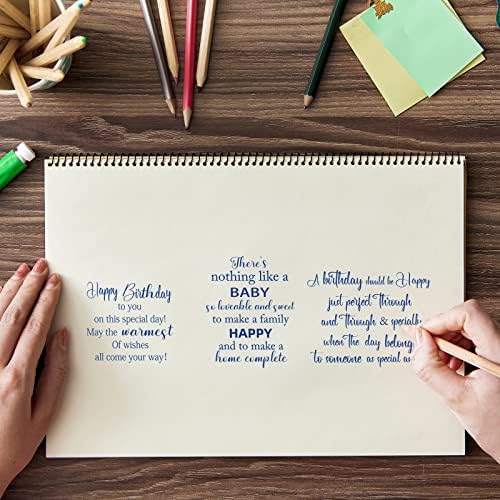 Happy Birthday
to you
on this special day!
May the warmest
Of wishes
all come your way!
There's
nothing like a
BABY
so loveable and sweet
to make a family
HAPPY
and to make a
home complete
A birthday should be Happy
just perfect Through
and Through & specially
when the day belongs
to someone as special as